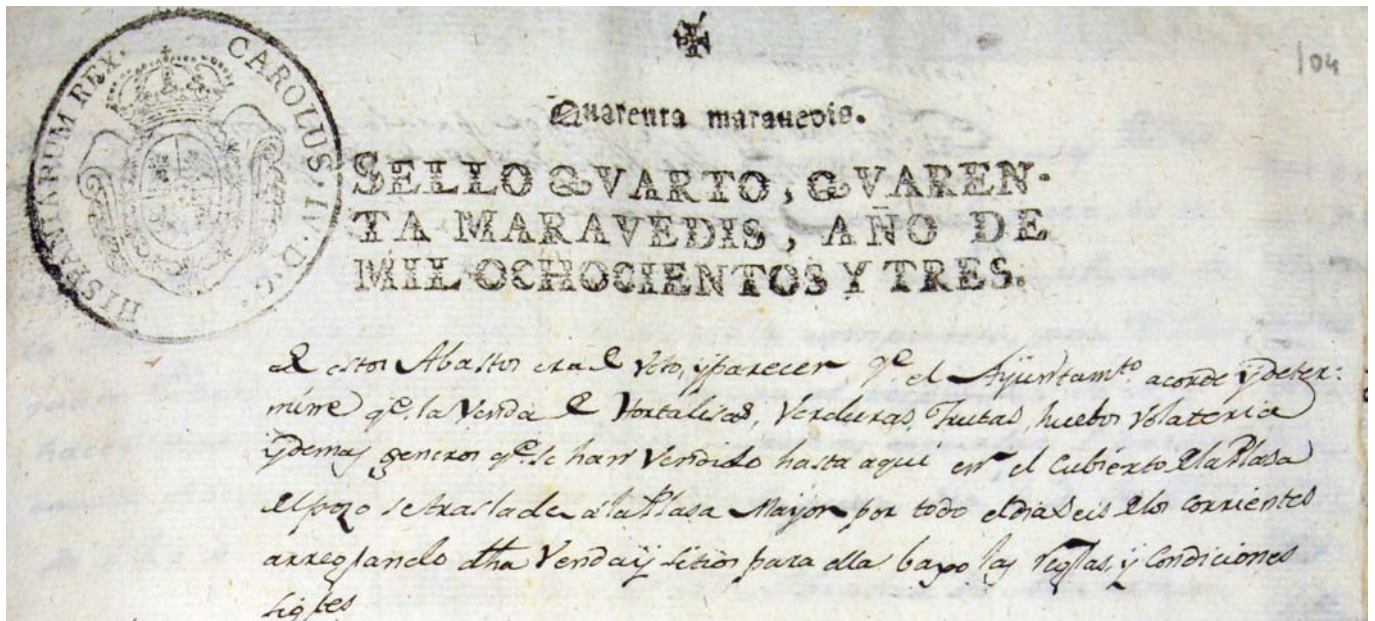 HISPANIARUM REX. CAROLUS. IV. D. G.
104
Quarenta maravedis.
SELLO QVARTO, QVAREN-
TA MARAVEDIS, AÑO DE
MIL OCHOCIENTOS Y TRES.
de estos Abastos era de Voto, ÿ parecer qe. el Aÿuntamto. acorde ÿ deter:
mine qe. la Venda de Hortalisas, Verduras, frutas, huebos Volateria
ÿ demas generos qe. se han Vendido hasta aqui en el Cubierto de la Plasa
del pozo se traslade a la Plasa Mayor por todo el dia seis de los corrientes
arreglando dha Venda ÿ sitios para ella baxo las reglas, y Condiciones
sigtes